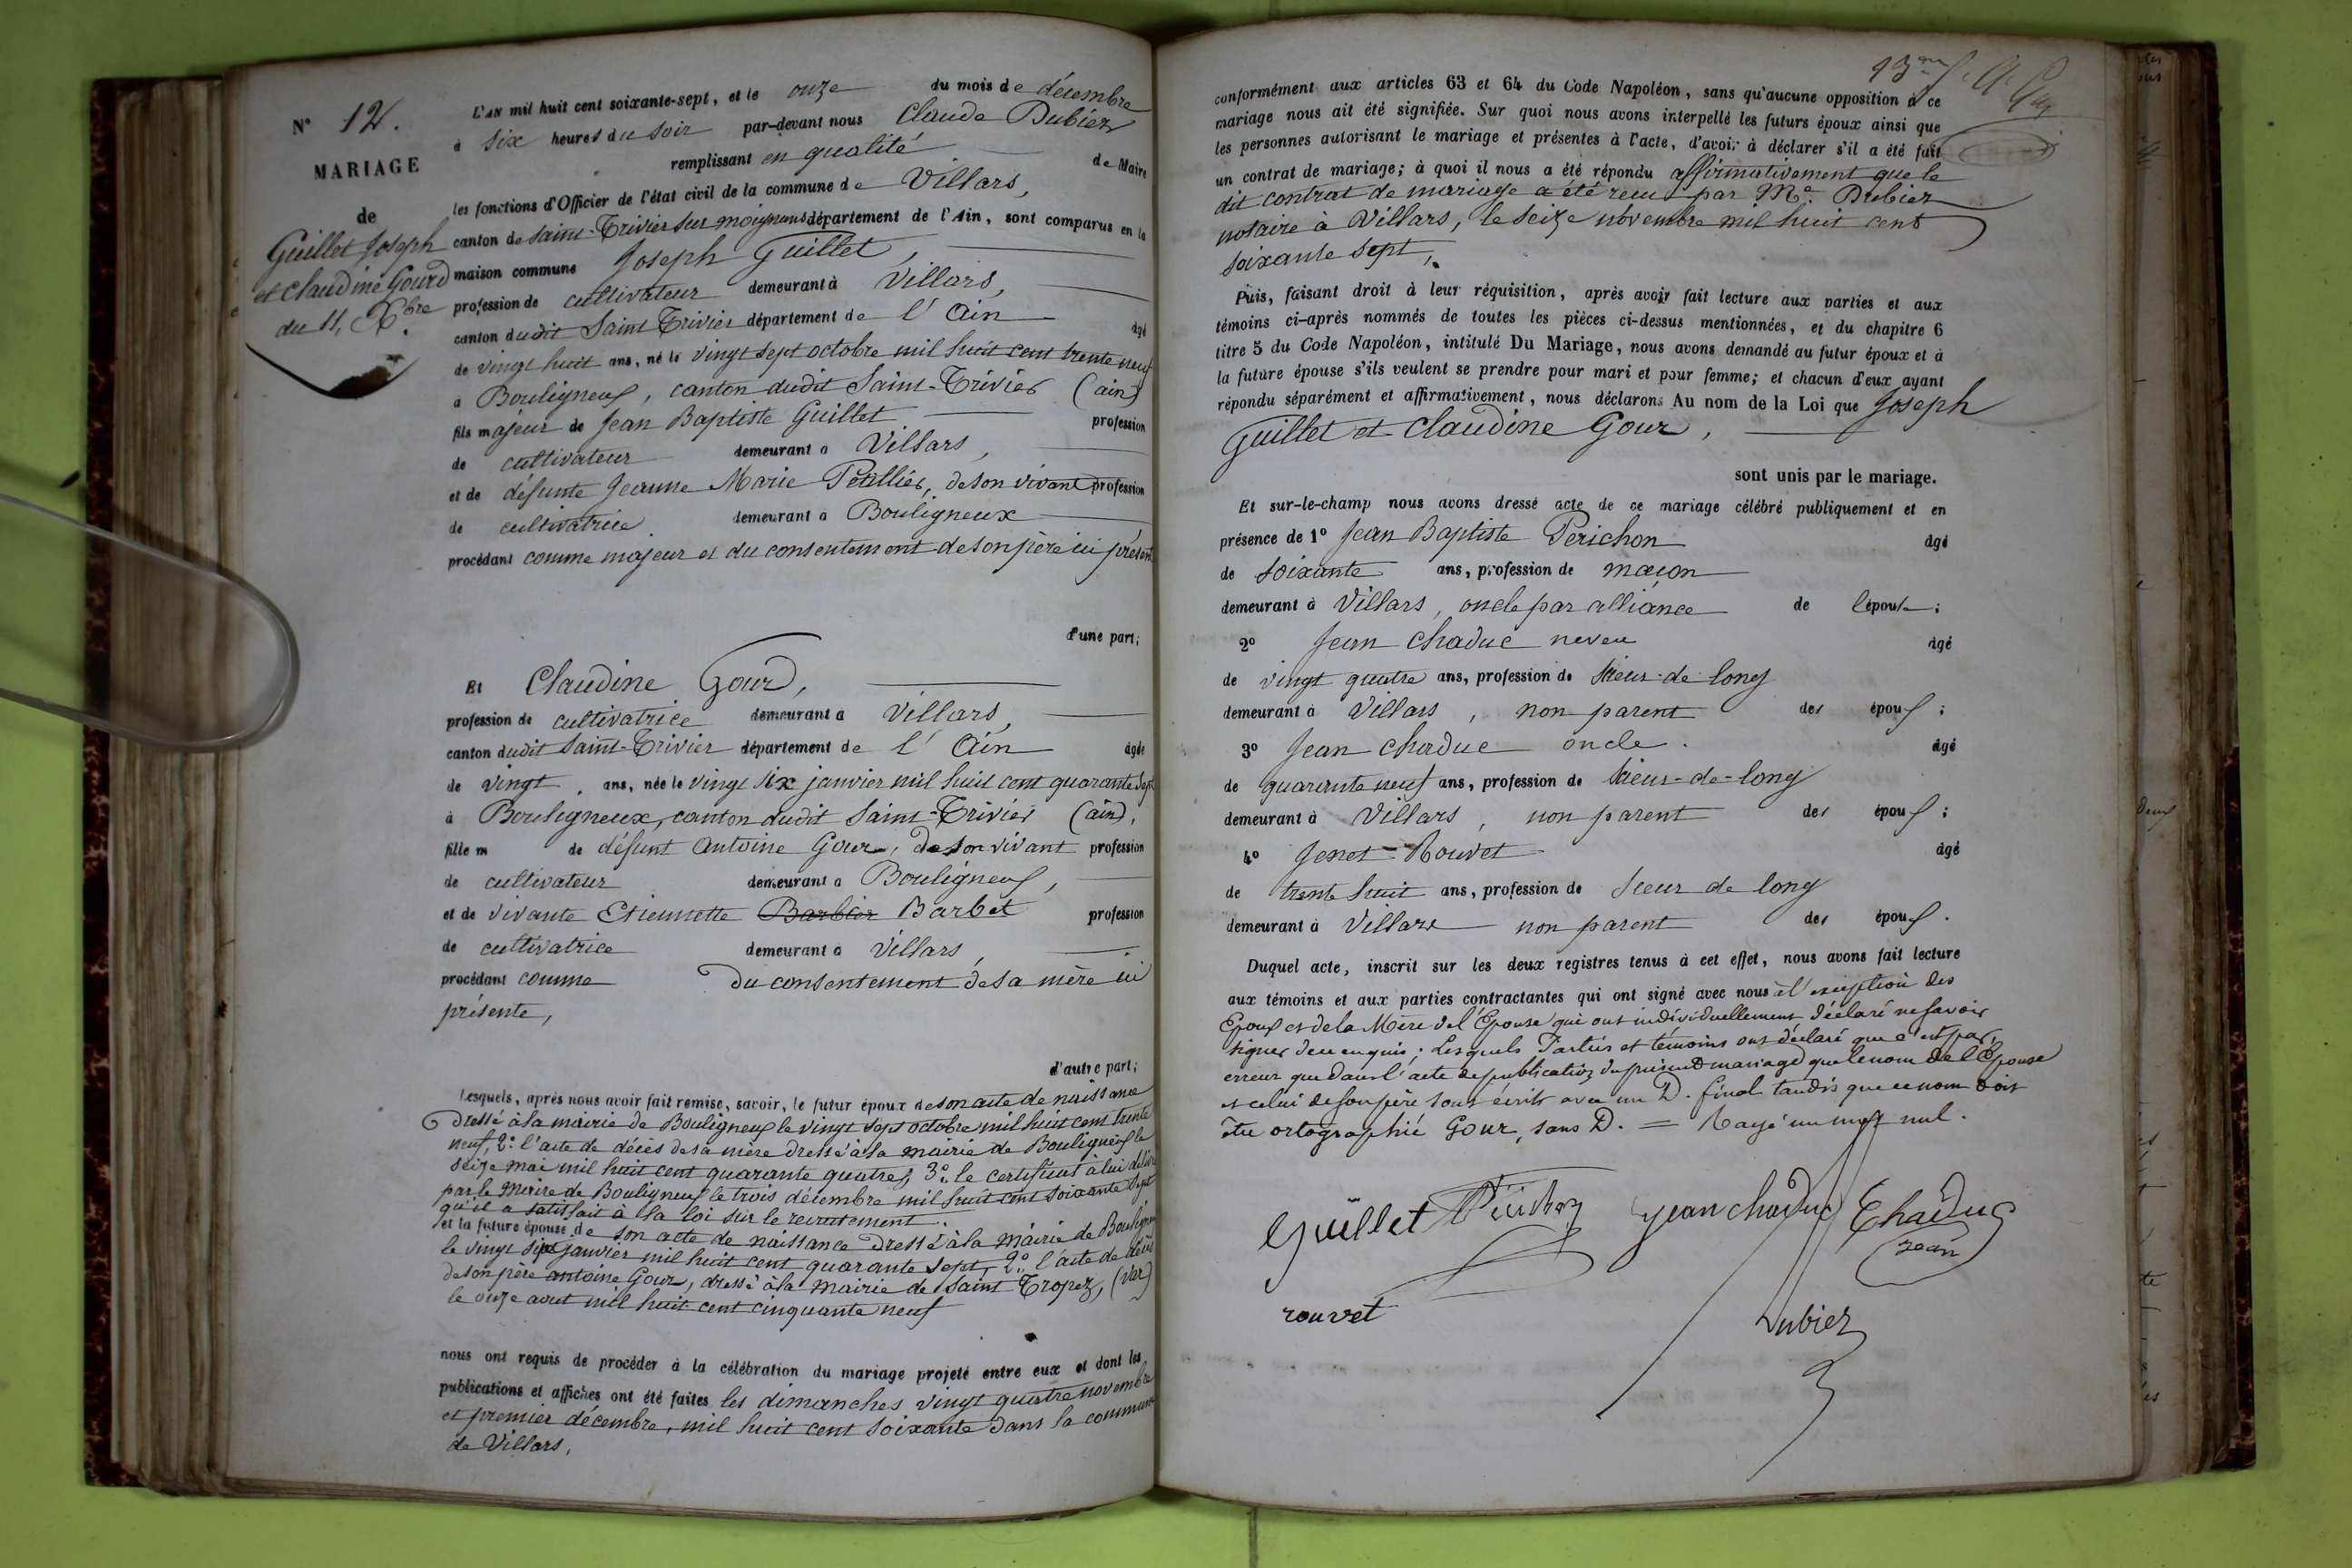 N° 12.
MARIAGE
de
Guillet Joseph
et Claudine Gourd
du 11, Xbre
L'AN mil huit cent soixante-sept, et le onze du mois de décembre
à six heures du soir par-devant nous Claude Dubiez
remplissant en qualité de Maire
les fonctions d'Officier de l'état civil de la commune de Villars,
canton de Saint-Trivier sur moignans département de l'Ain, sont comparus en la
maison commune Joseph Guillet,
profession de cultivateur demeurant à Villars,
canton dudit Saint Trivier département de l'Ain âgé
de vingt huit ans, né le vingt sept octobre mil huit cent trente neuf
à Bouligneux, canton dudit Saint-Trivier (ain)
fils majeur de Jean Baptiste Guillet profession
de cultivateur demeurant à Villars,
et de défunte Jeanne Marie Petillier, de son vivant profession
de cultivatrice demeurant à Bouligneux
procédant comme majeur et du consentement de son père ici présent
d'une part;
Et Claudine Gourd,
profession de cultivatrice demeurant à Villars,
canton dudit Saint-Trivier département de l'Ain âgée
de vingt ans, née le vingt six janvier mil huit cent quarante sept
à Bouligneux, canton dudit Saint-Trivier (ain),
fille m de défunt Antoine Gour, de son vivant profession
de cultivateur demeurant à Bouligneux,
et de vivante Etiennette Barbier Barbet profession
de cultivatrice demeurant à Villars,
procédant comme du consentement de sa mère ici
présente,
d'autre part;
Lesquels, après nous avoir fait remise, savoir, le futur époux de son acte de naissance
dressé à la mairie de Bouligneux le vingt sept octobre mil huit cent trente
neuf, 2° l'acte de décès de sa mère dressé à la mairie de Bouligneux le
seize mai mil huit cent quarante quatre, 3° le certificat à lui délivré
par le Maire de Bouligneux le trois décembre mil huit cent soixante sept
qu'il a satisfait à la loi sur le recrutement.
et la future épouse de son acte de naissance dressé à la mairie de Bouligneux
le vingt six janvier mil huit cent quarante sept, 2° l'acte de décès
de son père antoine Gour, dressé à la mairie de Saint Tropez, (Var)
le onze aout mil huit cent cinquante neuf
nous ont requis de procéder à la célébration du mariage projeté entre eux et dont les
publications et affiches ont été faites les dimanches vingt quatre novembre
et premier décembre, mil huit cent soixante dans la commune
de Villars,
conformément aux articles 63 et 64 du Code Napoléon, sans qu'aucune opposition à ce
mariage nous ait été signifiée. Sur quoi nous avons interpellé les futurs époux ainsi que
les personnes autorisant le mariage et présentes à l'acte, d'avoir à déclarer s'il a été fait
un contrat de mariage; à quoi il nous a été répondu affirmativement que le
dit contrat de mariage a été recu par Me. Dubiez
notaire à Villars, le seize novembre mil huit cent
soixante sept,
Puis, faisant droit à leur réquisition, après avoir fait lecture aux parties et aux
témoins ci-après nommés de toutes les pièces ci-dessus mentionnées, et du chapitre 6
titre 5 du Code Napoléon, intitulé Du Mariage, nous avons demandé au futur époux et à
la future épouse s'ils veulent se prendre pour mari et pour femme; et chacun d'eux ayant
répondu séparément et affirmativement, nous déclarons Au nom de la Loi que Joseph
Guillet et Claudine Gour,
sont unis par le mariage.
Et sur-le-champ nous avons dressé acte de ce mariage célébré publiquement et en
présence de 1° Jean Baptiste Perichon âgé
de soixante ans, profession de maçon
demeurant à Villars, oncle par alliance de l'épouse;
2° Jean Chaduc neveu âgé
de vingt quatre ans, profession de scieur-de-long
demeurant à Villars, non parent des époux;
3° Jean Chaduc oncle. âgé
de quarante neuf ans, profession de scieur-de-long
demeurant à Villars, non parent des époux;
4° Genet Rouvet âgé
de trente huit ans, profession de scieur de long
demeurant à Villars non parent des époux.
Duquel acte, inscrit sur les deux registres tenus à cet effet, nous avons fait lecture
aux témoins et aux parties contractantes qui ont signé avec nous à l'exception des
Epoux et de la Mère de l'Epouse qui ont individuellement déclaré ne savoir
signer de ce enquis; Lesquels Parties et témoins ont déclaré que c'est par
erreur que dans l'acte de publication du présent mariage que le nom de l'Epouse
et celui de son père sont écrits avec un D. final tandis que ce nom doit
être ortographié Gour, sans D. = Rayé un mot nul.
Guillet Périchon Jean chaduc Chaduc
Jean
rouvet Dubiez